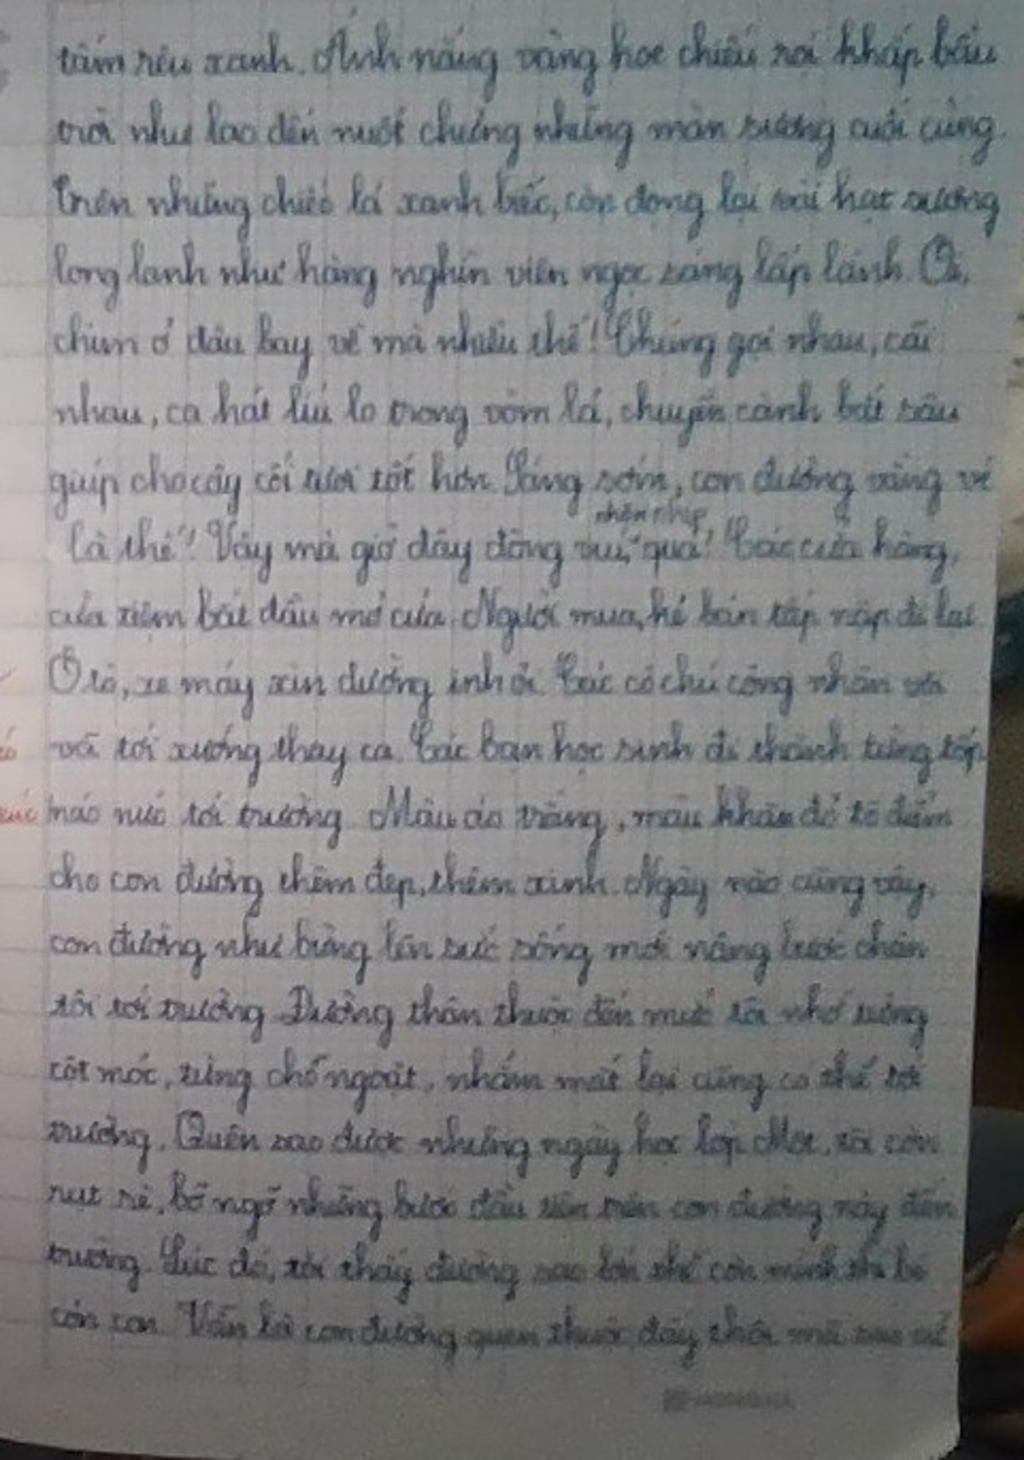 tấm rêu xanh. Ánh nắng vàng hoe chiếu rọi khắp bầu
trời như lao đến nuốt chửng những màn sương cuối cùng.
Trên những chiếc lá xanh biếc, còn đọng lại vài hạt sương
long lanh như hàng nghìn viên ngọc sáng lấp lánh. Ồ,
chim ở đâu bay về mà nhiều thế! Chúng gọi nhau, cãi
nhau, ca hát líu lo trong vòm lá, chuyền cành bắt sâu
giúp cho cây cối tươi tốt hơn. Sáng sớm, con đường vắng vẻ
là thế! Vậy mà giờ đây đông vui, nhộn nhịp quá! Các cửa hàng,
cửa tiệm bắt đầu mở cửa. Người mua, kẻ bán tấp nập đi lại.
Ô tô, xe máy xin đường inh ỏi. Các cô chú công nhân vội
vã tới xưởng thay ca. Các bạn học sinh đi thành từng tốp
náo nức tới trường. Màu áo trắng, màu khăn đỏ tô điểm
cho con đường thêm đẹp, thêm xinh. Ngày nào cũng vậy,
con đường như bừng lên sức sống mới nâng bước chân
tôi tới trường. Đường thân thuộc đến mức tôi nhớ từng
cột mốc, từng chỗ ngoặt, nhắm mắt lại cũng có thể tới
trường. Quên sao được những ngày học lớp Một, tôi còn
rụt rè, bỡ ngỡ những bước đầu tiên trên con đường này đến
trường. Lúc đó, tôi thấy đường sao lớn thế còn mình thì bé
cỏn con. Vẫn là con đường quen thuộc đấy thôi mà sao